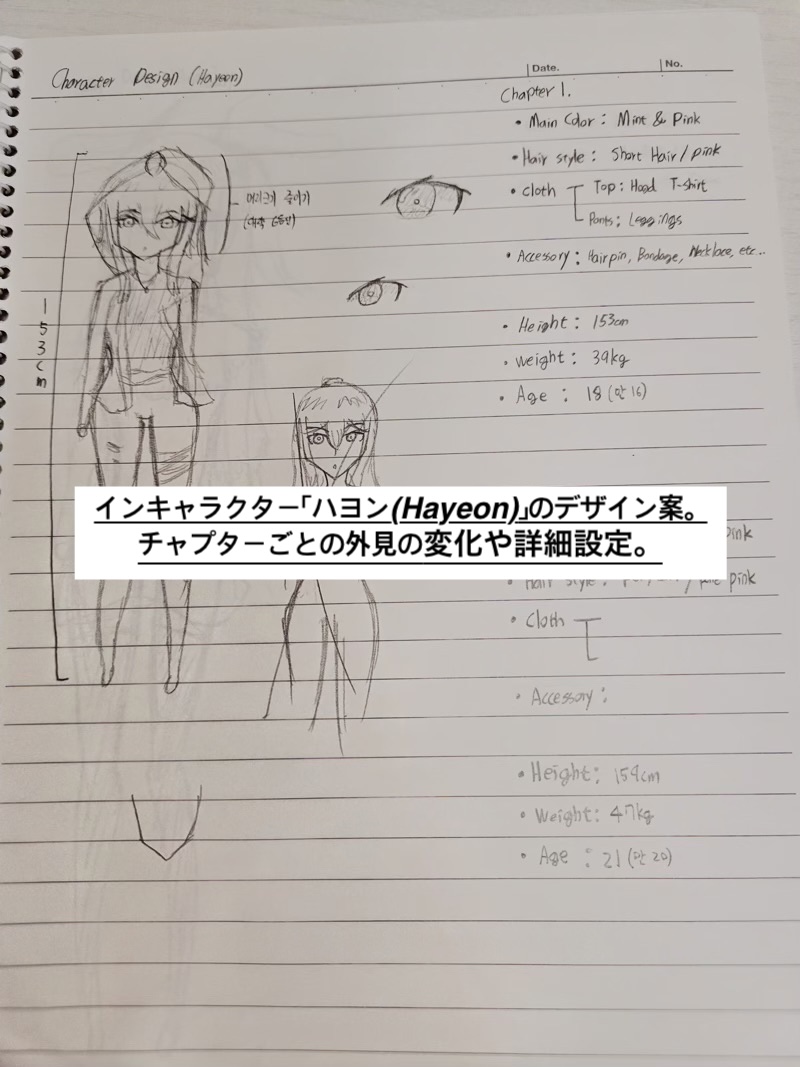 Character Design (Hayeon)
Date.
No.
Chapter 1.
• Main Color : Mint & Pink
• Hair style : Short Hair / pink
• cloth Top : Hood T-shirt
Pants : Leggings
• Accessory : Hairpin, Bondage, Necklace, etc..
머리크기 줄이기
(대략 6등신)
153cm
• Height : 153cm
• weight : 39kg
• Age : 18 (만 16)
インキャラクター「ハヨン(Hayeon)」のデザイン案。
チャプターごとの外見の変化や詳細設定。
pink
• Hair style : pink
• Cloth
• Accessory :
• Height : 159cm
• Weight : 47kg
• Age : 21 (만 20)